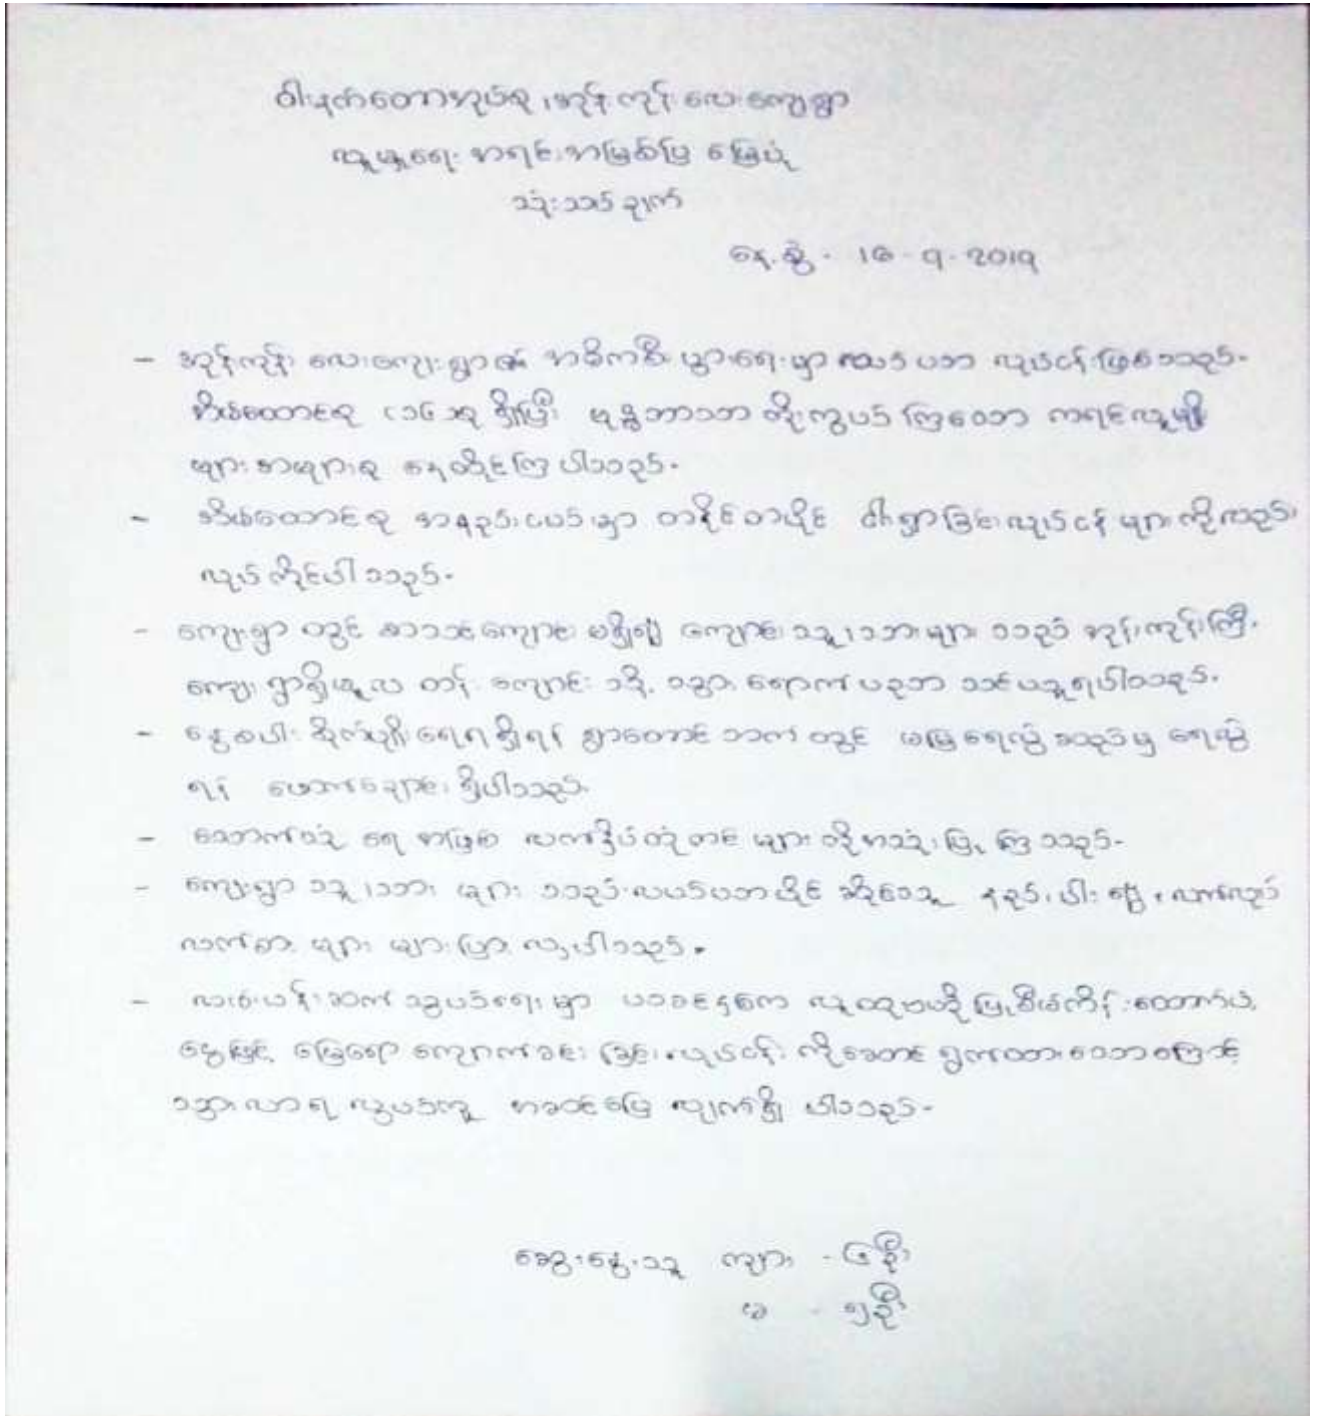 ဝါးနက်တောအုပ်စု၊ အုန်းကုန်းလေးကျေးရွာ
လူမှုရေး အရင်းအမြစ်ပြ မြေပုံ
သုံးသပ်ချက်
နေ့စွဲ - ၁၆-၇-၂၀၁၇
- အုန်းကုန်းလေးကျေးရွာ၏ အဓိကစီးပွားရေးမှာ လယ်ယာ လုပ်ငန်းဖြစ်သည်။
အိမ်ထောင်စု ရှိပြီး ဗုဒ္ဓဘာသာ ကိုးကွယ်ကြသော ကရင်လူမျိုး
များ အများစု နေထိုင်ကြပါသည်။
- အိမ်ထောင်စု အနည်းငယ်မှာ တနိုင်တပိုင် ငါးရှာခြင်းလုပ်ငန်းများကိုလည်း
လုပ်ကိုင်ပါသည်။
- ကျေးရွာတွင် စာသင်ကျောင်း မရှိ၍ ကျောင်းသူ၊သားများ သည် အုန်းကုန်းကြီး
ကျေးရွာရှိမူလတန်းကျောင်း သို့ သွားရောက်ပညာ သင်ယူရပါသည်။
- နွေစပါး စိုက်ပျိုးရေရရှိရန် ရွာတောင်ဘက်တွင် မြေရေလွှဲ မှ ရေလွှဲ
ရန် ဖောက်ချောင်း ရှိပါသည်။
- သောက်သုံး ရေ အဖြစ် လက်နှိပ်တုံကင် များ ကိုအသုံးပြု ကြသည်။
- ကျေးရွာ သူ၊သား များ သည် လယ်ယာပိုင် ဆိုသော်လည်း နည်းပါး၍ လက်လုပ်
လက်စား များ များပြားလှပါသည်။
- လမ်းပန်းဆက်သွယ်ရေးမှာ ယခင်နှစ်က လူထုဗဟိုပြုစီမံကိန်း ထောက်ပံ့
ငွေဖြင့် မြေရော ကျောက်ခင်း ခြင်းလုပ်ငန်း ကိုဆောင်ရွက်ထားသောကြောင့်
သွားလာရ လွယ်ကူ အဆင်ပြေ လျက်ရှိ ပါသည်။
ဆွေးနွေးသူ ကျား - ဦး
မ - ၅ဦး